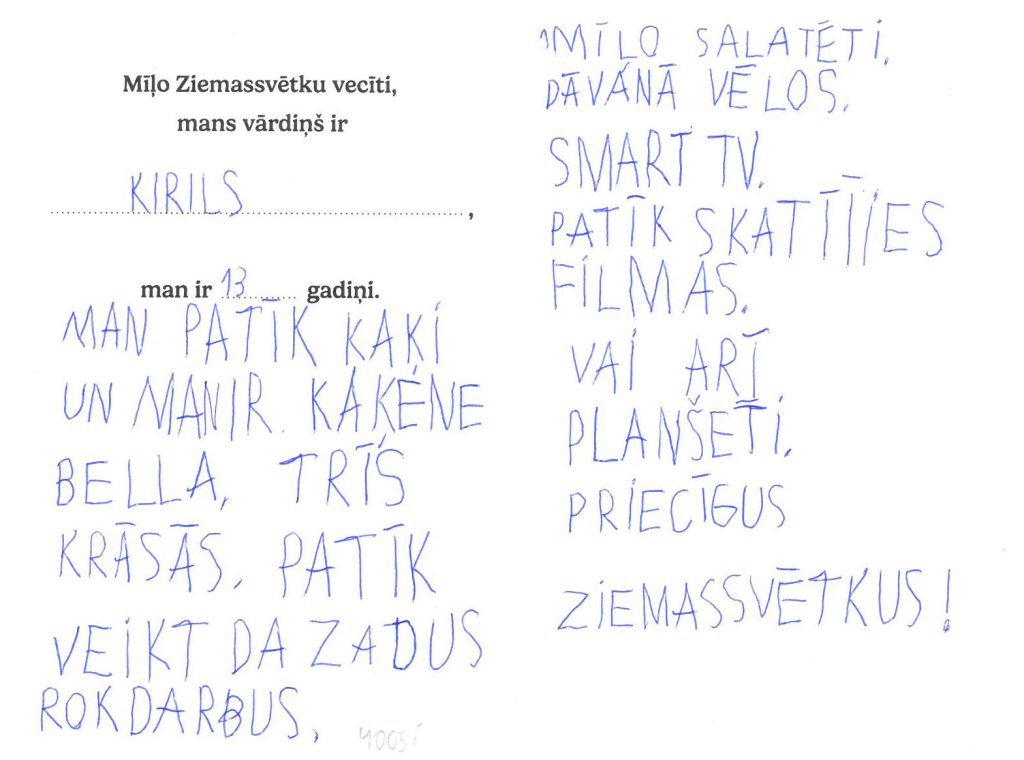 Mīļo Ziemassvētku vecīti,
mans vārdiņš ir
KIRILS,
man ir 13 gadiņi.
MAN PATĪK KAĶI
UN MAN IR. KAĶĒNE
BELLA, TRĪS
KRĀSĀS. PATĪK
VEIKT DAZADUS
ROKDARBUS.
4005i
MĪĻO SALATĒTI,
DĀVANĀ VĒLOS.
SMART TV.
PATĪK SKATĪTIES
FILMAS.
VAI ARĪ
PLANŠETI.
PRIECĪGUS
ZIEMASSVĒTKUS!